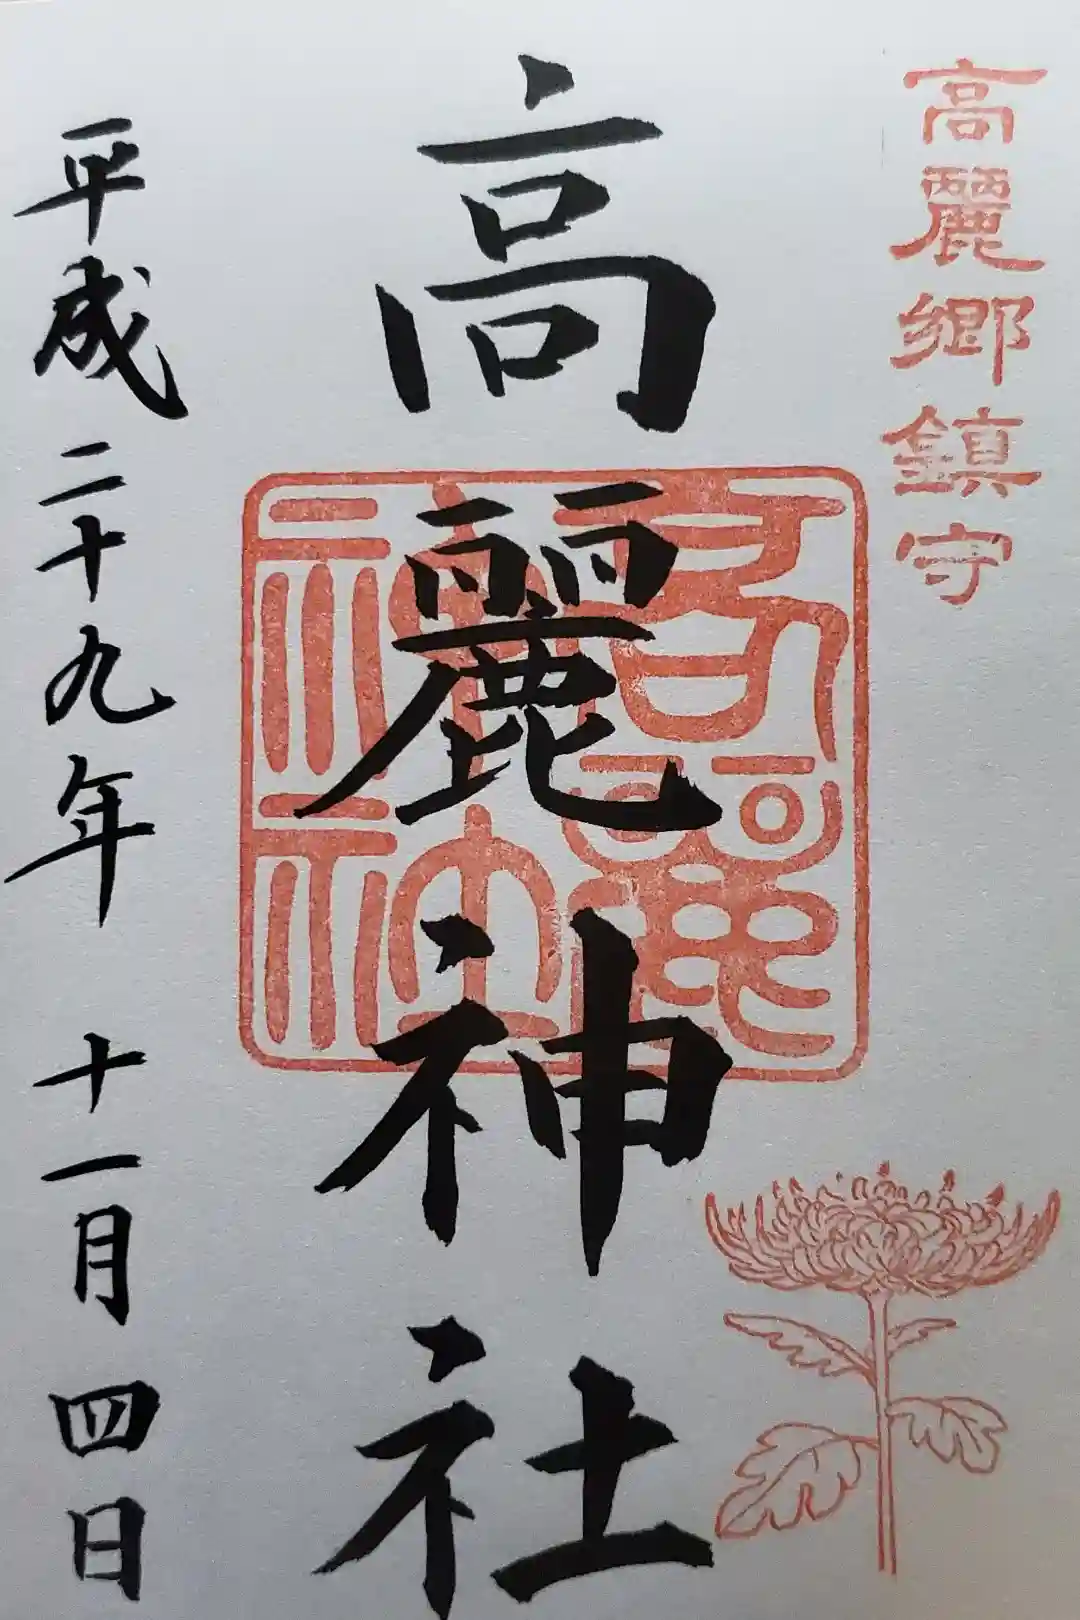 高麗郷鎮守
高麗神社
高麗神社
平成二十九年 十一月 四日